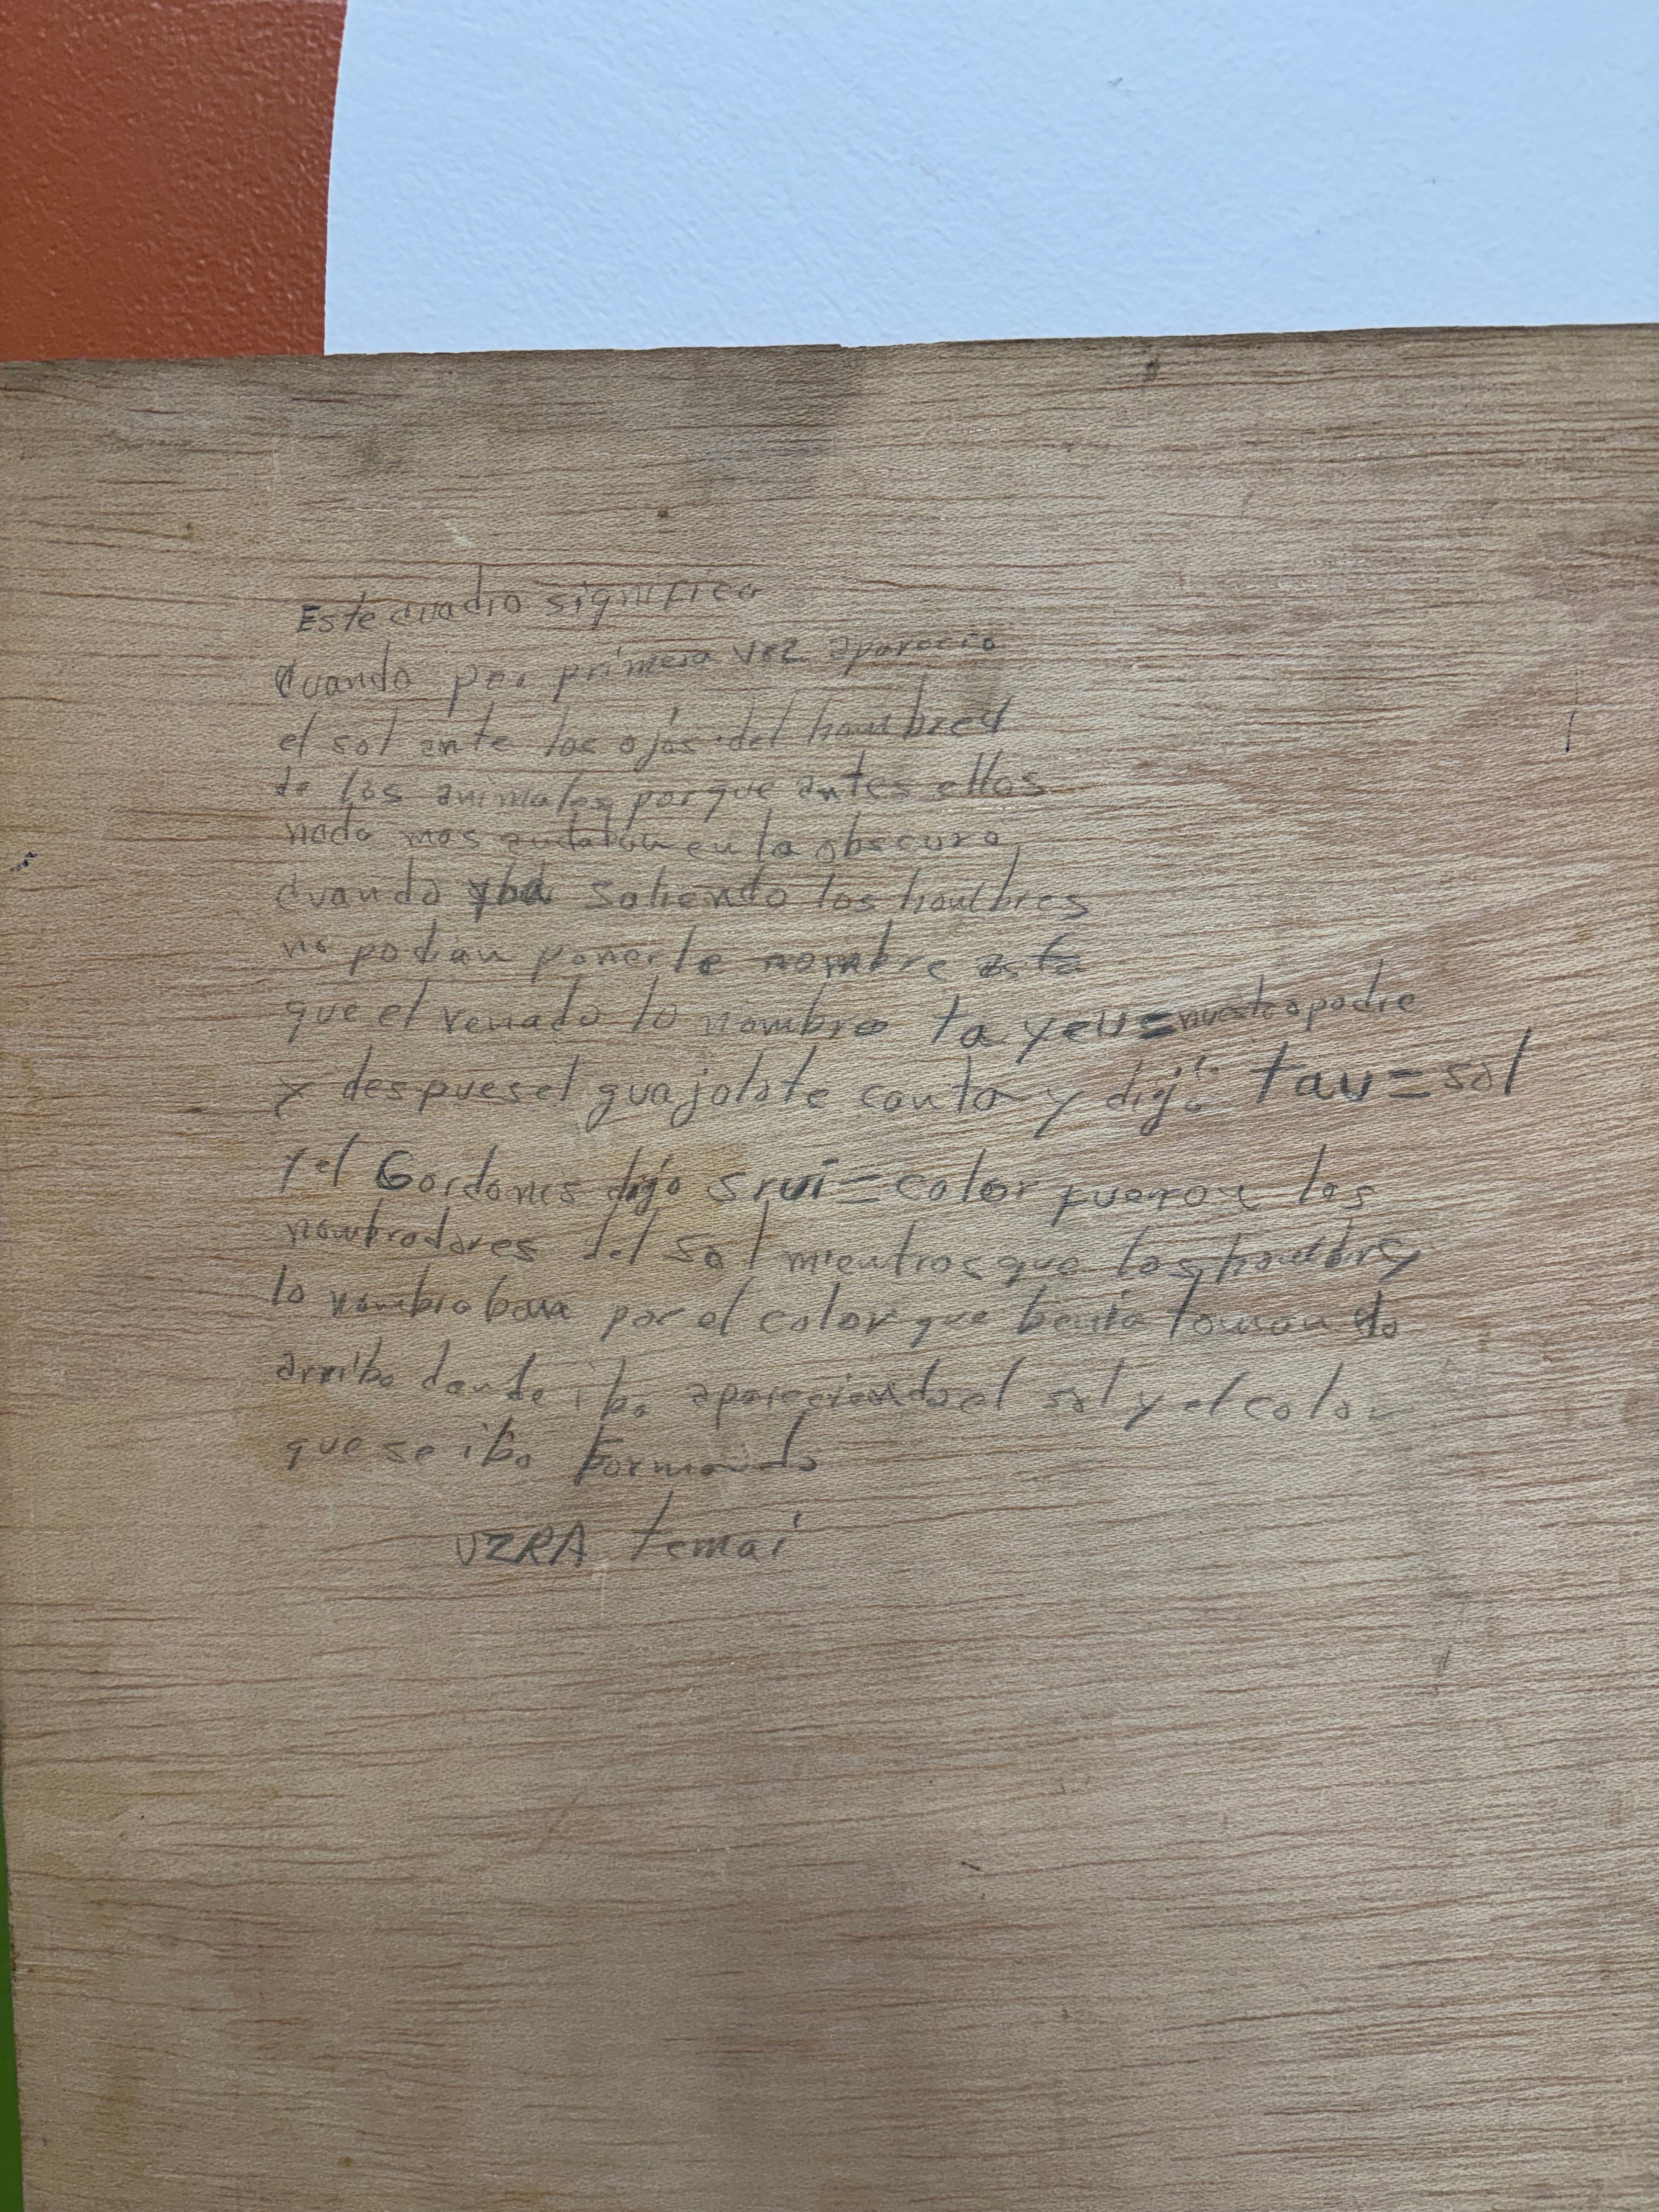 Este cuadro significa
Cuando por primera vez aparecio
el sol ante los ojos del hombre y
de los animales porque antes ellos
nada mas andaban en lo obscuro,
cuando yba saliendo los hombres
no podian ponerle nombre asta
que el venado lo nombro ta yeu = nuestro padre
y despues el guajolote canto y dijo tau = sol
y el Gordones dijo srui = color fueron los
nombradores del sol mientras que los hombres
lo nombraban por el color que benia tomando
arriba donde iba apareciendo el sol y el color
que se iba formando
UZRA temai